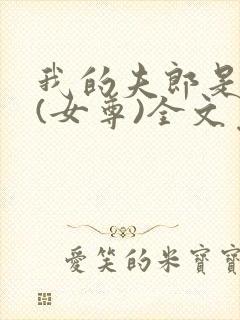 我的夫郎是
(女尊)全文
愛笑的米寶寶